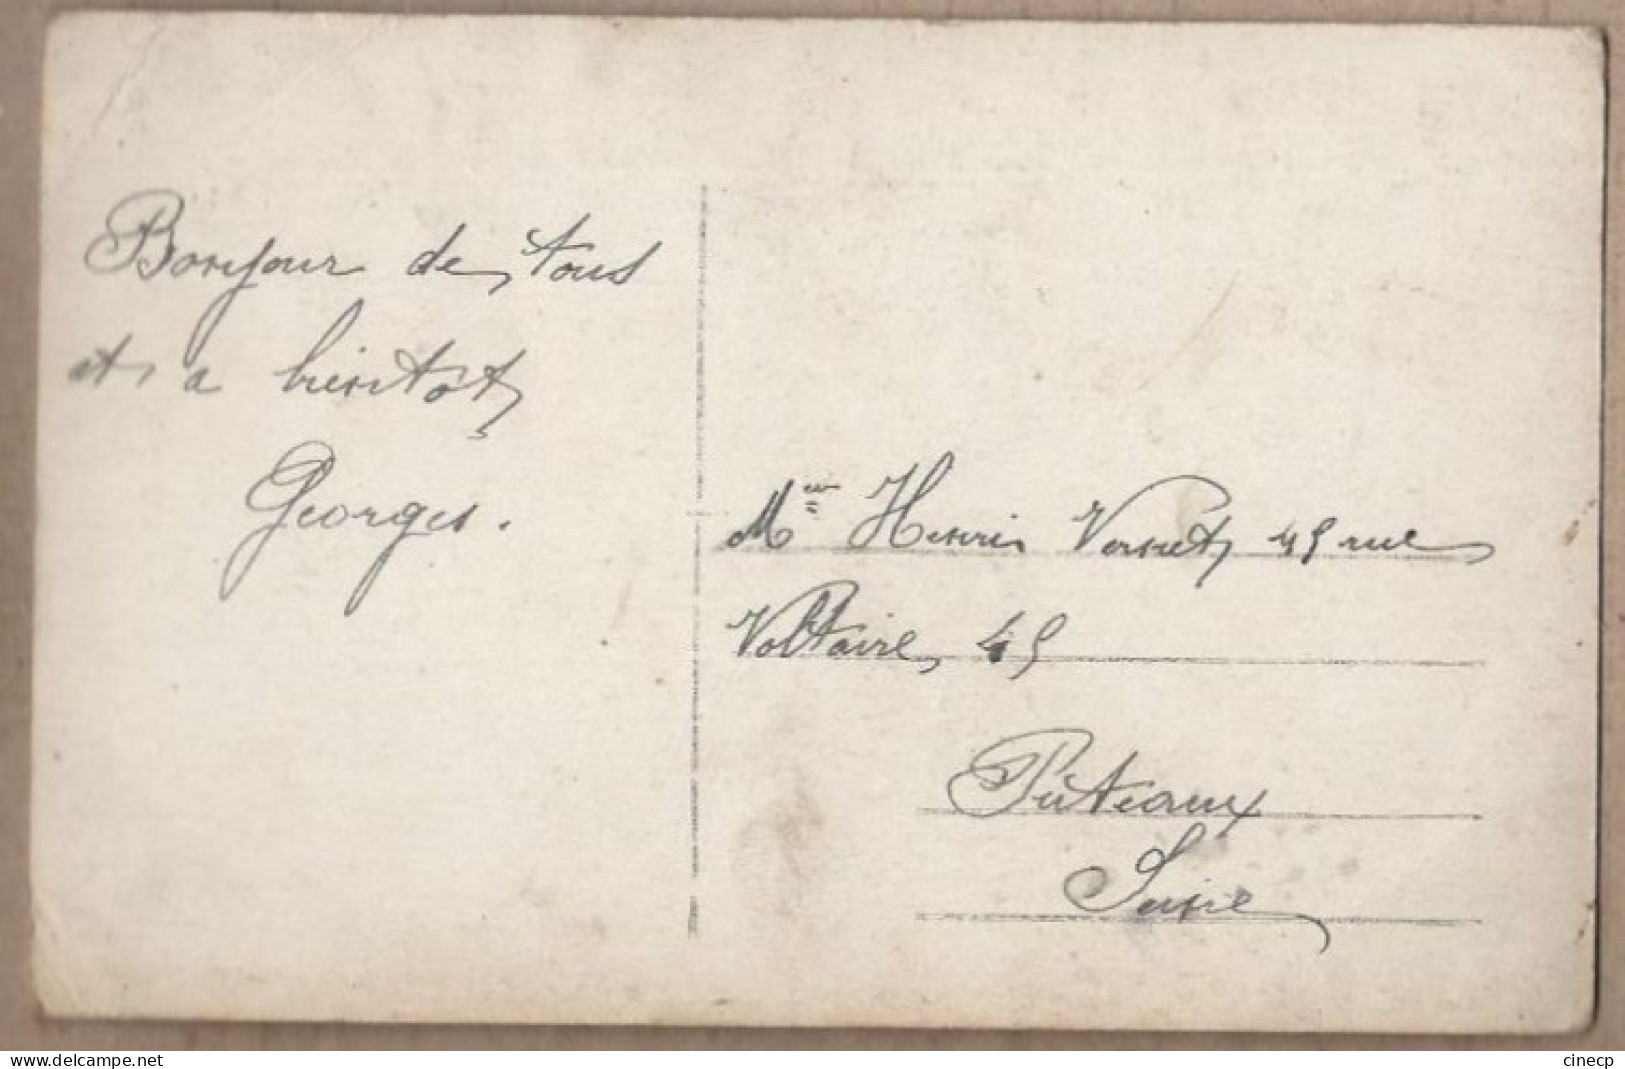 Bonjour de tous
et a bientôt
Georges.
Mr Henri Vernet 45 rue
Voltaire, 45
Puteaux
Seine
delcampe.net
cinecp